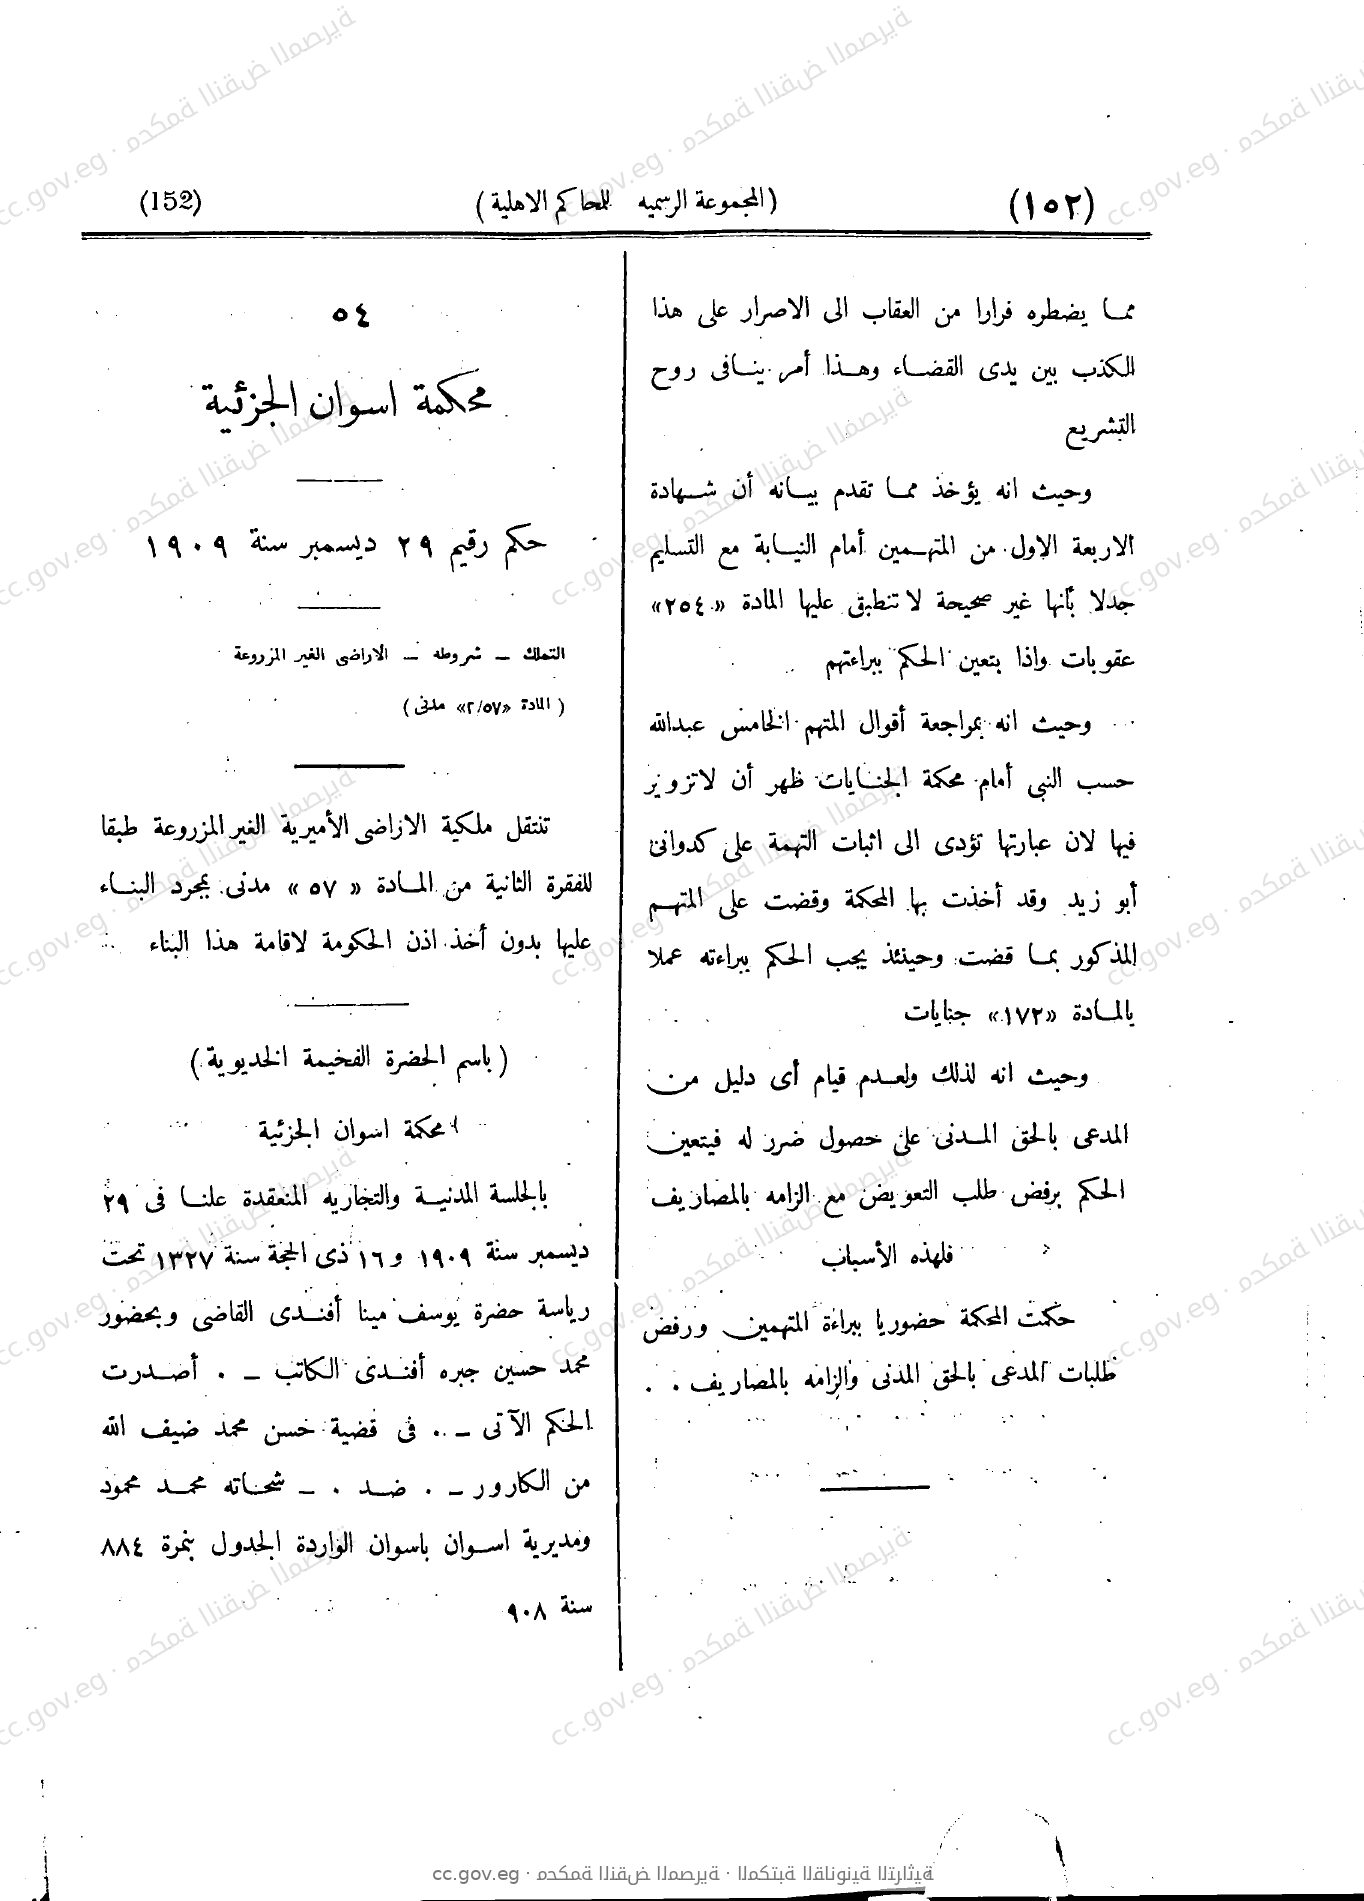 (١٥٢)
(المجموعة الرسميه للمحاكم الاهلية)
(152)
ممــا يضطره فرارا من العقاب الى الاصرار على هذا
الكذب بين يدى القضــاء وهــذا أمر ينــافى روح
التشريع
وحيث انه يؤخذ ممــا تقدم بيــانه أن شــهادة
الاربعة الاول من المتهــمين أمام النيــابة مع التسليم
جدلا بأنها غير صحيحة لا تنطبق عليها المادة «٢٥٤»
عقوبات واذا يتعين الحكم ببراءتهم
وحيث انه بمراجعة أقوال المتهم الخامس عبدالله
حسب النبي أمام محكمة الجنــايات ظهر أن لا تزوير
فيها لان عبارتها تؤدى الى اثبات التهمة على كدوانى
أبو زيد وقد أخذت بها المحكمة وقضت على المتهــم
المذكور بمــا قضت وحينئذ يجب الحكم ببراءته عملا
بالمــادة «١٧٢» جنايات
وحيث انه لذلك ولعــدم قيام أى دليل من
المدعى بالحق المــدنى على حصول ضرر له فيتعين
الحكم برفض طلب التعويض مع الزامه بالمصاريف
فلهذه الأسباب
حكمت المحكمة حضوريا ببراءة المتهمين ورفض
طلبات المدعى بالحق المدنى والزامه بالمصاريف . .
٥٤
محكمة اسوان الجزئية
حكم رقيم ٢٩ ديسمبر سنة ١٩٠٩
التملك – شروطه – الاراضى الغير المزروعة
(المادة «٢/٥٧» مدنى)
تنتقل ملكية الاراضى الأميرية الغير المزروعة طبقا
للفقرة الثانية من المــادة « ٥٧ » مدنى بمجرد البنــاء
عليها بدون أخذ اذن الحكومة لاقامة هذا البناء
(باسم الحضرة الفخيمة الخديوية)
محكمة اسوان الجزئية
بالجلسة المدنيــة والتجاريه المنعقدة علنــا فى ٢٩
ديسمبر سنة ١٩٠٩ و ١٦ ذى الحجة سنة ١٣٢٧ تحت
رياسة حضرة يوسف مينا أفنــدى القاضى وبحضور
محمد حسين جبره أفنــدى الكاتب – . أصــدرت
الحكم الآتى – . . فى قضية حسن محمد ضيف الله
من الكارور – . ضــد . – شحــاته محمــد محمود
ومديرية اســوان باسوان الواردة الجدول بنمرة ٨٨٤
سنة ٩٠٨
cc.gov.eg · محكمة النقض المصرية · المكتبة القانونية التراثية